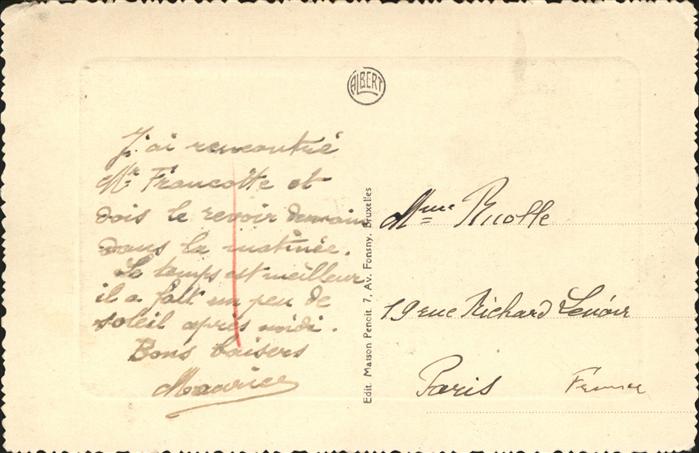 ALBERT
J'ai rencontré
Mr Francotte et
dois le revoir demain
dans la matinée.
Le temps est meilleur
il a fait un peu de
soleil après midi.
Bons baisers
Maurice
Edit. Maison Pencit. 7, Av. Fonsny, Bruxelles
Mme
19 rue Richard Lenoir
Paris France